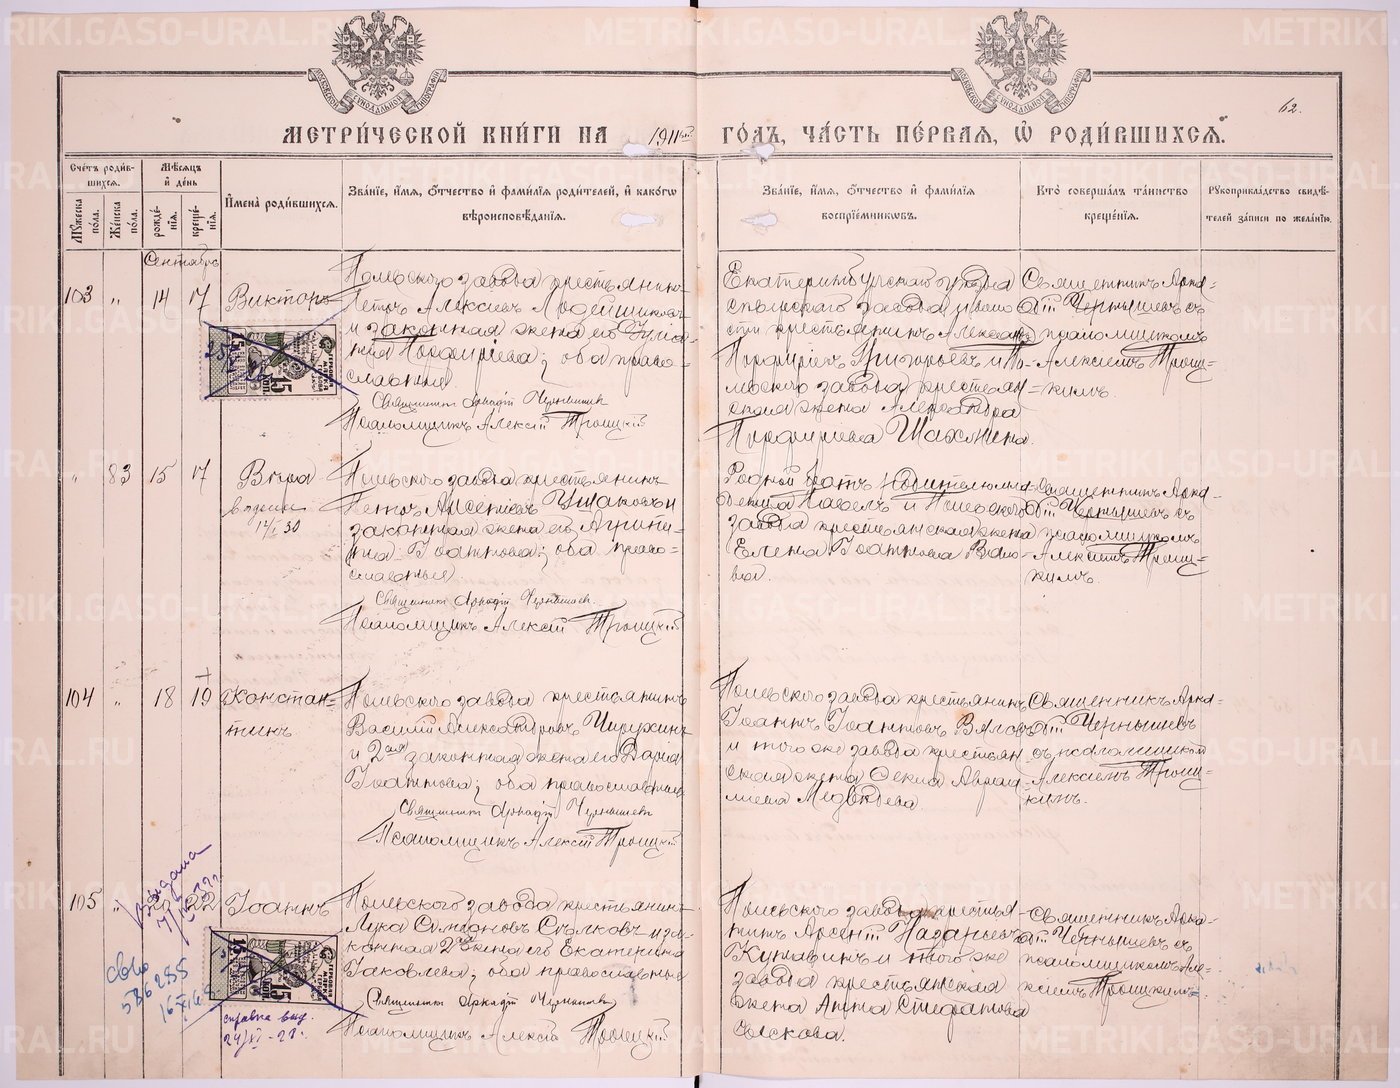 МЕТРИЧЕСКОЙ КНИГИ НА 1911ый ГОДЪ, ЧАСТЬ ПЕРВАЯ, Ѡ РОДИВШИХСЯ.
62.
Счетъ родив-
шихся.
Мужеска пола.
Женска пола.
Мѣсяцъ
и день
рожде-
нія.
креще-
нія.
Имена родившихся.
Званіе, имя, отчество и фамилія родителей, и какогѡ
вѣроисповѣданія.
Званіе, имя, отчество и фамилія
воспріемниковъ.
Кто совершалъ таинство
крещенія.
Рукоприкладство свидѣ-
телей записи по желанію.
Сентябрь
103 „ 14 17 Викторъ
Полевского завода крестьянинъ
Петръ Алексіевъ
и законная жена его
Порфиріева; оба право-
славные.
Священникъ Аркадій Чернышевъ
Псаломщикъ Алексій Троицкій
Екатеринбургскаго уѣзда
сертскаго завода
крестьянинъ Александръ
Порфиріевъ Григорьевъ и По-
левского завода крестьян-
ская жена Александра
Порфиріева Шахмина.
Священникъ Арка-
дій Чернышевъ съ
псаломщикомъ
Алексіемъ Троиц-
кимъ.
„ 83 15 17 Вѣра
выдана
12/I 30
Полевского завода крестьянинъ
Петръ Арсеніевъ Ушаковъ и
законная жена его Агрипи-
на Іоаннова; оба право-
славные
Священникъ Аркадій Чернышевъ
Псаломщикъ Алексій Троицкій
Родной братъ родительницы
Павелъ и Полевского
завода крестьянская жена
Елена Іоаннова Вяло-
ва.
Священникъ Арка-
дій Чернышевъ съ
псаломщикомъ
Алексіемъ Троиц-
кимъ.
104 „ 18 19 Констан-
тинъ
Полевского завода крестьянинъ
Василій Александровъ Чирухинъ
и 2ая законная жена его Дарія
Іоаннова; оба православные
Священникъ Аркадій Чернышевъ
Псаломщикъ Алексій Троицкій
Полевского завода крестьянинъ
Іоаннъ Іоанновъ Вяловъ
и того же завода крестьян-
ская жена Ѳекла Авраа-
міева Медвѣдева
Священникъ Арка-
дій Чернышевъ
съ псаломщикомъ
Алексіемъ Троиц-
кимъ.
105 „ 20 22 Іоаннъ
Полевского завода крестьянинъ
Лука Симеоновъ Сысковъ и за-
конная 2ая жена его Екатерина
Іаковлева; оба православные
Священникъ Аркадій Чернышевъ
Псаломщикъ Алексій Троицкій
Полевского завода крестья-
нинъ Арсеній Назарьевъ
Кунавинъ и того же
завода крестьянская
жена Анна Стефанова
Сыскова.
Священникъ Арка-
дій Чернышевъ съ
псаломщикомъ Але-
ксіемъ Троицкимъ.
Выдана
св-во
586255
справка выд.
24/XI-27г.
15 КОП.
15 КОП.
METRIKI.GASO-URAL.RU